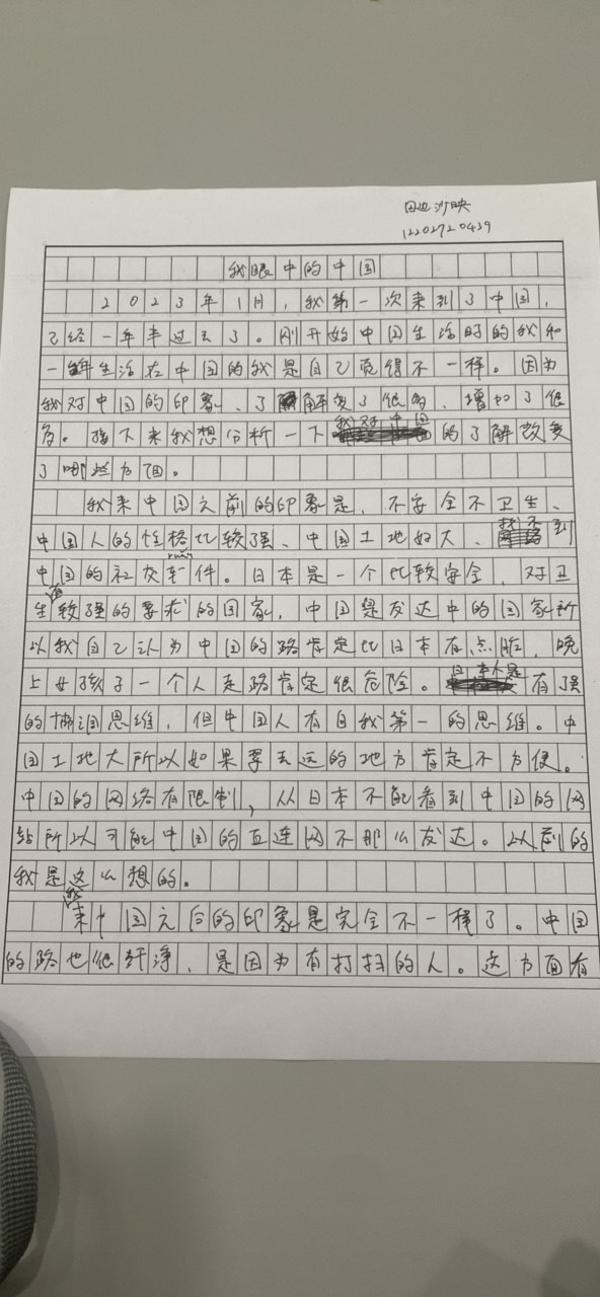 田边沙映
12202720439
我眼中的中国
2023年1月,我第一次来到了中国,
已经一年半过去了。刚开始中国生活时的我和
一年生活在中国的我是自己觉得不一样。因为
我对中国的印象、了解变了很多、增加了很
多。接下来我想分析一下我对中国的了解改变
了哪些方面。
我来中国之前的印象是,不安全不卫生、
中国人的性格比较强、中国土地好大、找不到
中国的社交软件。日本是一个比较安全,对卫
生较强的要求的国家,中国是发达中的国家所
以我自己认为中国的路肯定比日本有点脏,晚
上女孩子一个人走路肯定很危险。日本人是有强
的协调思维,但中国人有自我第一的思维。中
国土地大所以如果要去远的地方肯定不方便。
中国的网络有限制,从日本不能看到中国的网
站所以可能中国的互连网不那么发达。以前的
我是这么想的。
我来中国之后的印象是完全不一样了。中国
的路也很干净,是因为有打扫的人。这方面有